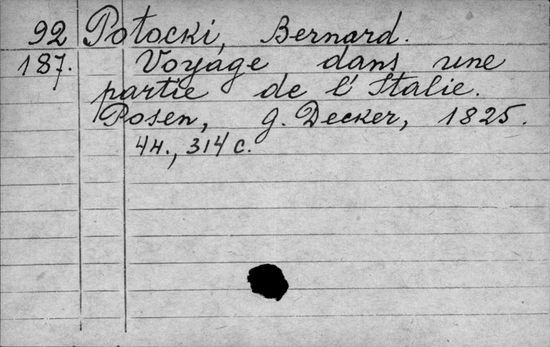 92 Potocki, Bernard.
187. Voyage dans une
partie de l'Italie.
Posen, G. Decker, 1825.
4н., 314 с.